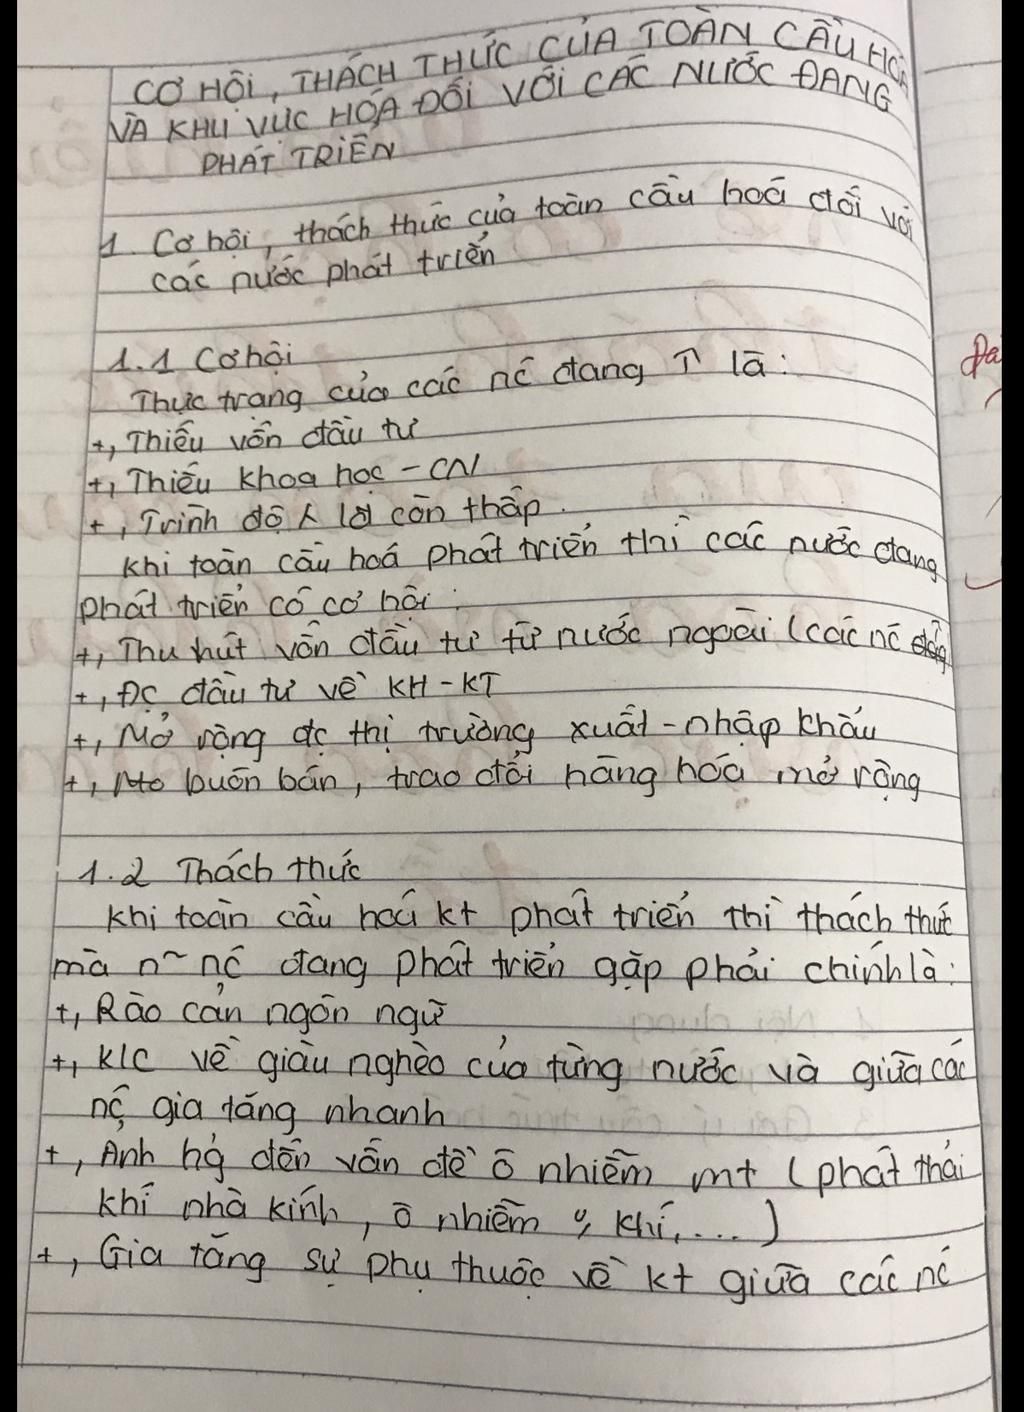 CƠ HỘI, THÁCH THỨC CỦA TOÀN CẦU HÓA
VÀ KHU VỰC HÓA ĐỐI VỚI CÁC NƯỚC ĐANG
PHÁT TRIỂN
1. Cơ hội, thách thức của toàn cầu hoá đối với
các nước phát triển
1.1 Cơ hội
Thực trạng của các nc đang ↑ là:
+, Thiếu vốn đầu tư
+, Thiếu khoa học - CN
+, Trình độ lđ còn thấp.
Khi toàn cầu hoá phát triển thì các nước đang
phát triển có cơ hội:
+, Thu hút vốn đầu tư từ nước ngoài (các nc
+, Đc đầu tư về KH-KT
+, Mở rộng đc thị trường xuất-nhập khẩu
+, buôn bán, trao đổi hàng hóa mở rộng
1.2 Thách thức
Khi toàn cầu hoá kt phát triển thì thách thức
mà n~ nc đang phát triển gặp phải chính là:
+, Rào cản ngôn ngữ
+, K/C về giàu nghèo của từng nước và giữa các
nc gia tăng nhanh
+, Ảnh hg đến vấn đề ô nhiễm mt (phát thải
khí nhà kính, ô nhiễm khí,....)
+, Gia tăng sự phụ thuộc về kt giữa các nc